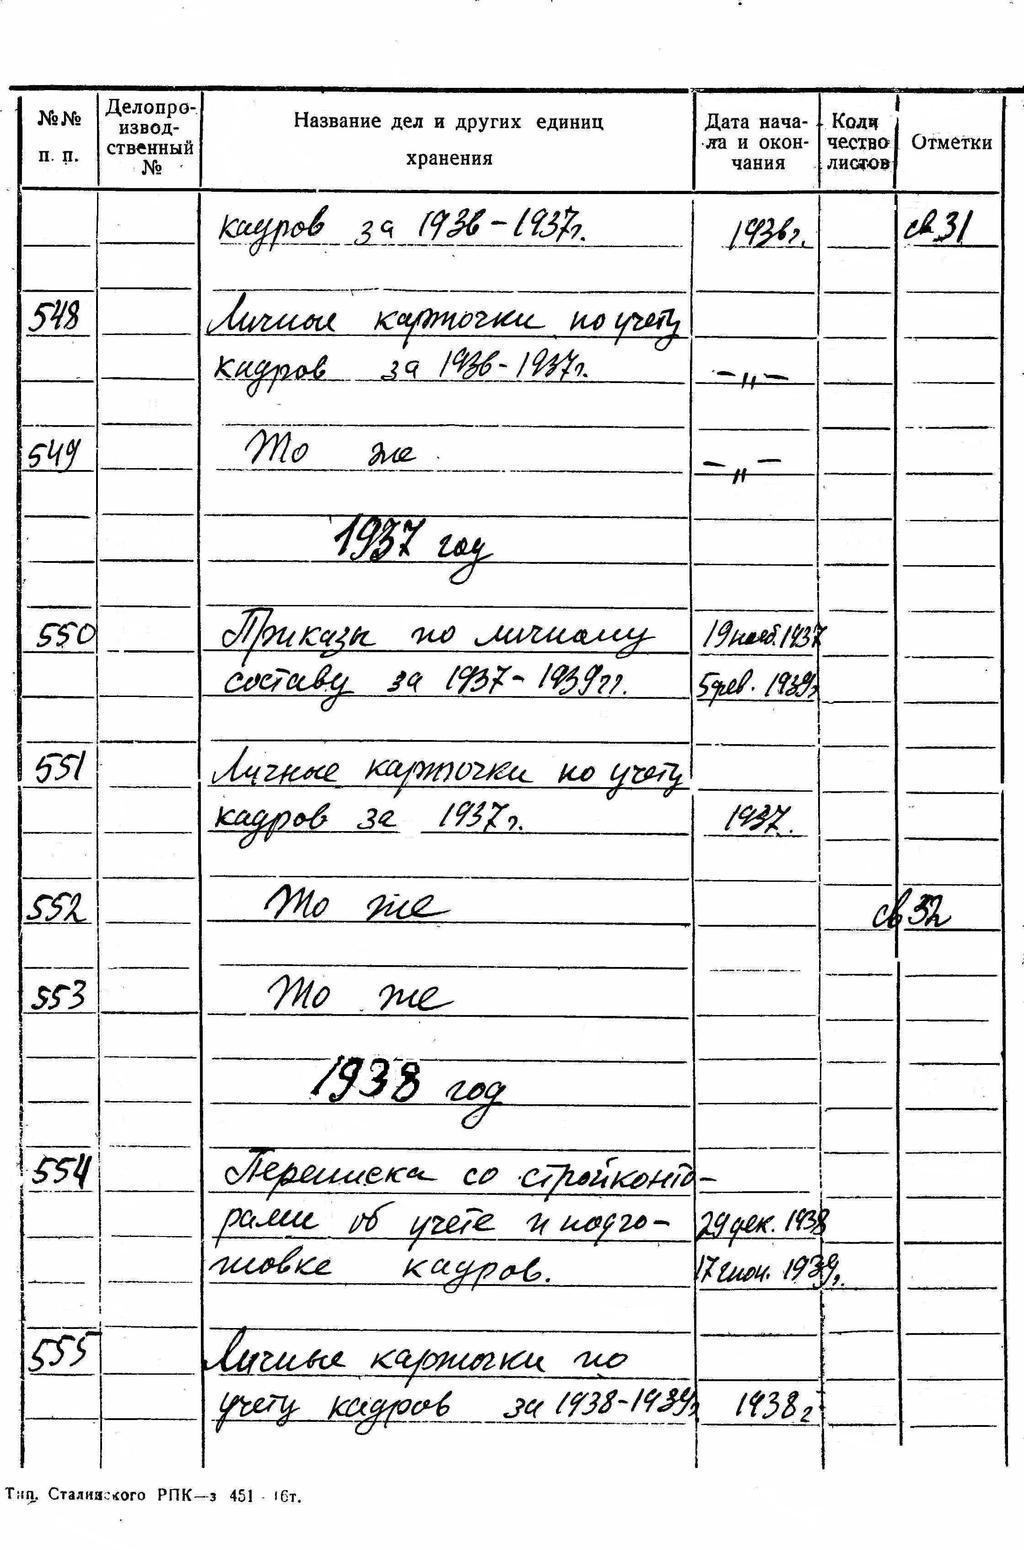 №№ п. п. Делопро-извод-ственный № Название дел и других единиц хранения Дата нача-ла и окон-чания Коли чество листов Отметки
кадров за 1936-1937г. 1936г. св 31
548 Личные карточки по учету
кадров за 1936-1937г. -"-
549 То же -"-
1937 год
550 Приказы по личному 19 нояб. 1937
составу за 1937-1939гг. 5 фев. 1939г
551 Личные карточки по учету
кадров за 1937г. 1937.
552 То же св 32
553 То же
1938 год
554 Переписка со стройконто-
рами об учете и подго- 29 дек. 1938
товке кадров. 17 июн. 1939г.
555 Личные карточки по
учету кадров за 1938-1939г 1938г
Тип. Сталинского РПК—з 451 - 16т.